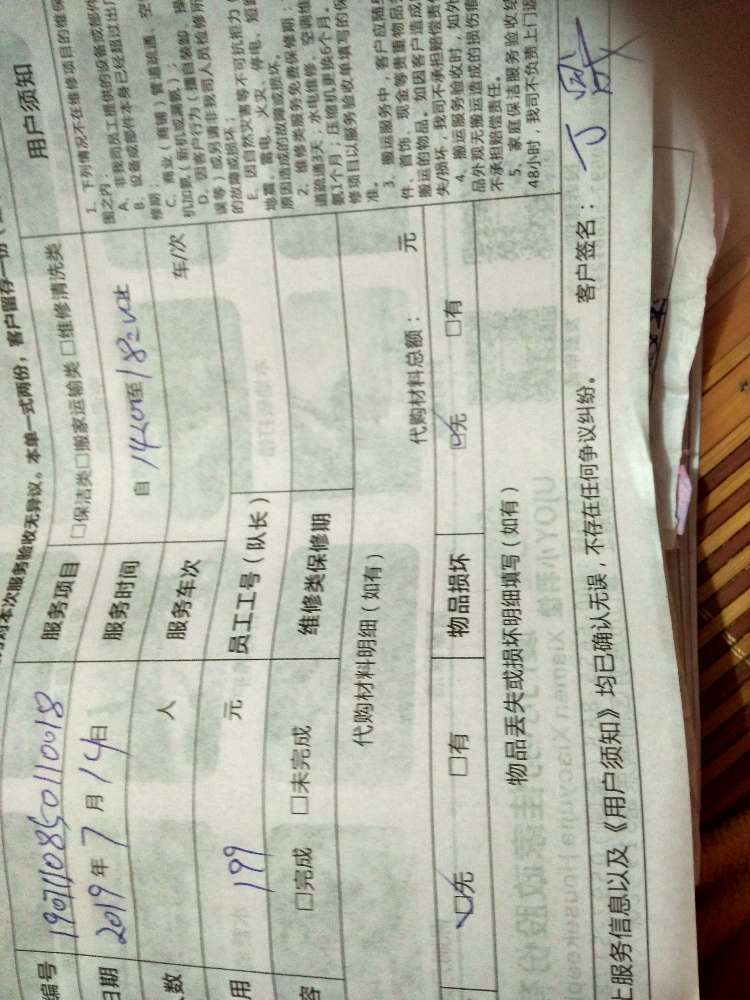 对本次服务验收无异议。本单一式两份，客户留存一份
编号 服务项目 □保洁类□搬家运输类 □维修清洗类 用户须知
日期 2019年7月14日 服务时间 自14:00至18:
数 人 服务车次 车/次
用 199 元 员工工号（队长）
容 □完成 □未完成 维修类保修期
代购材料明细（如有） 代购材料总额： 元
□无 □有 物品损坏 □无 □有
物品丢失或损坏明细填写（如有）
上服务信息以及《用户须知》均已确认无误，不存在任何争议纠纷。 客户签名：
1. 下列情况不在维修项目的维保
围之内：
A. 非我司员工提供的设备或部件
B. 设备或部件本身已经超过出厂
修期；
C. 商业（商铺）管道疏通、空
机加氨（新机或漏氨）；
D. 因客户行为（擅自装卸、操
误等）或另请非我司人员检修所
的故障或损坏；
E. 因自然灾害等不可抗拒力（
地震、雷电、火灾、停电、短路
原因造成的故障或损坏。
2. 维修类服务免费保修期：
道疏通3天；水电维修、空调维
氨1个月；压缩机更换6个月。
修项目以服务验收单填写的保
准。
3. 搬运服务中，客户应随身
件、首饰、现金等贵重物品
搬运的物品。如因客户造成
失/损坏，我司不承担赔偿责任
4. 搬运服务验收时，如外
品外观无搬运造成的损伤
不承担赔偿责任。
5. 家庭保洁服务验收结
48小时，我司不负责上门返